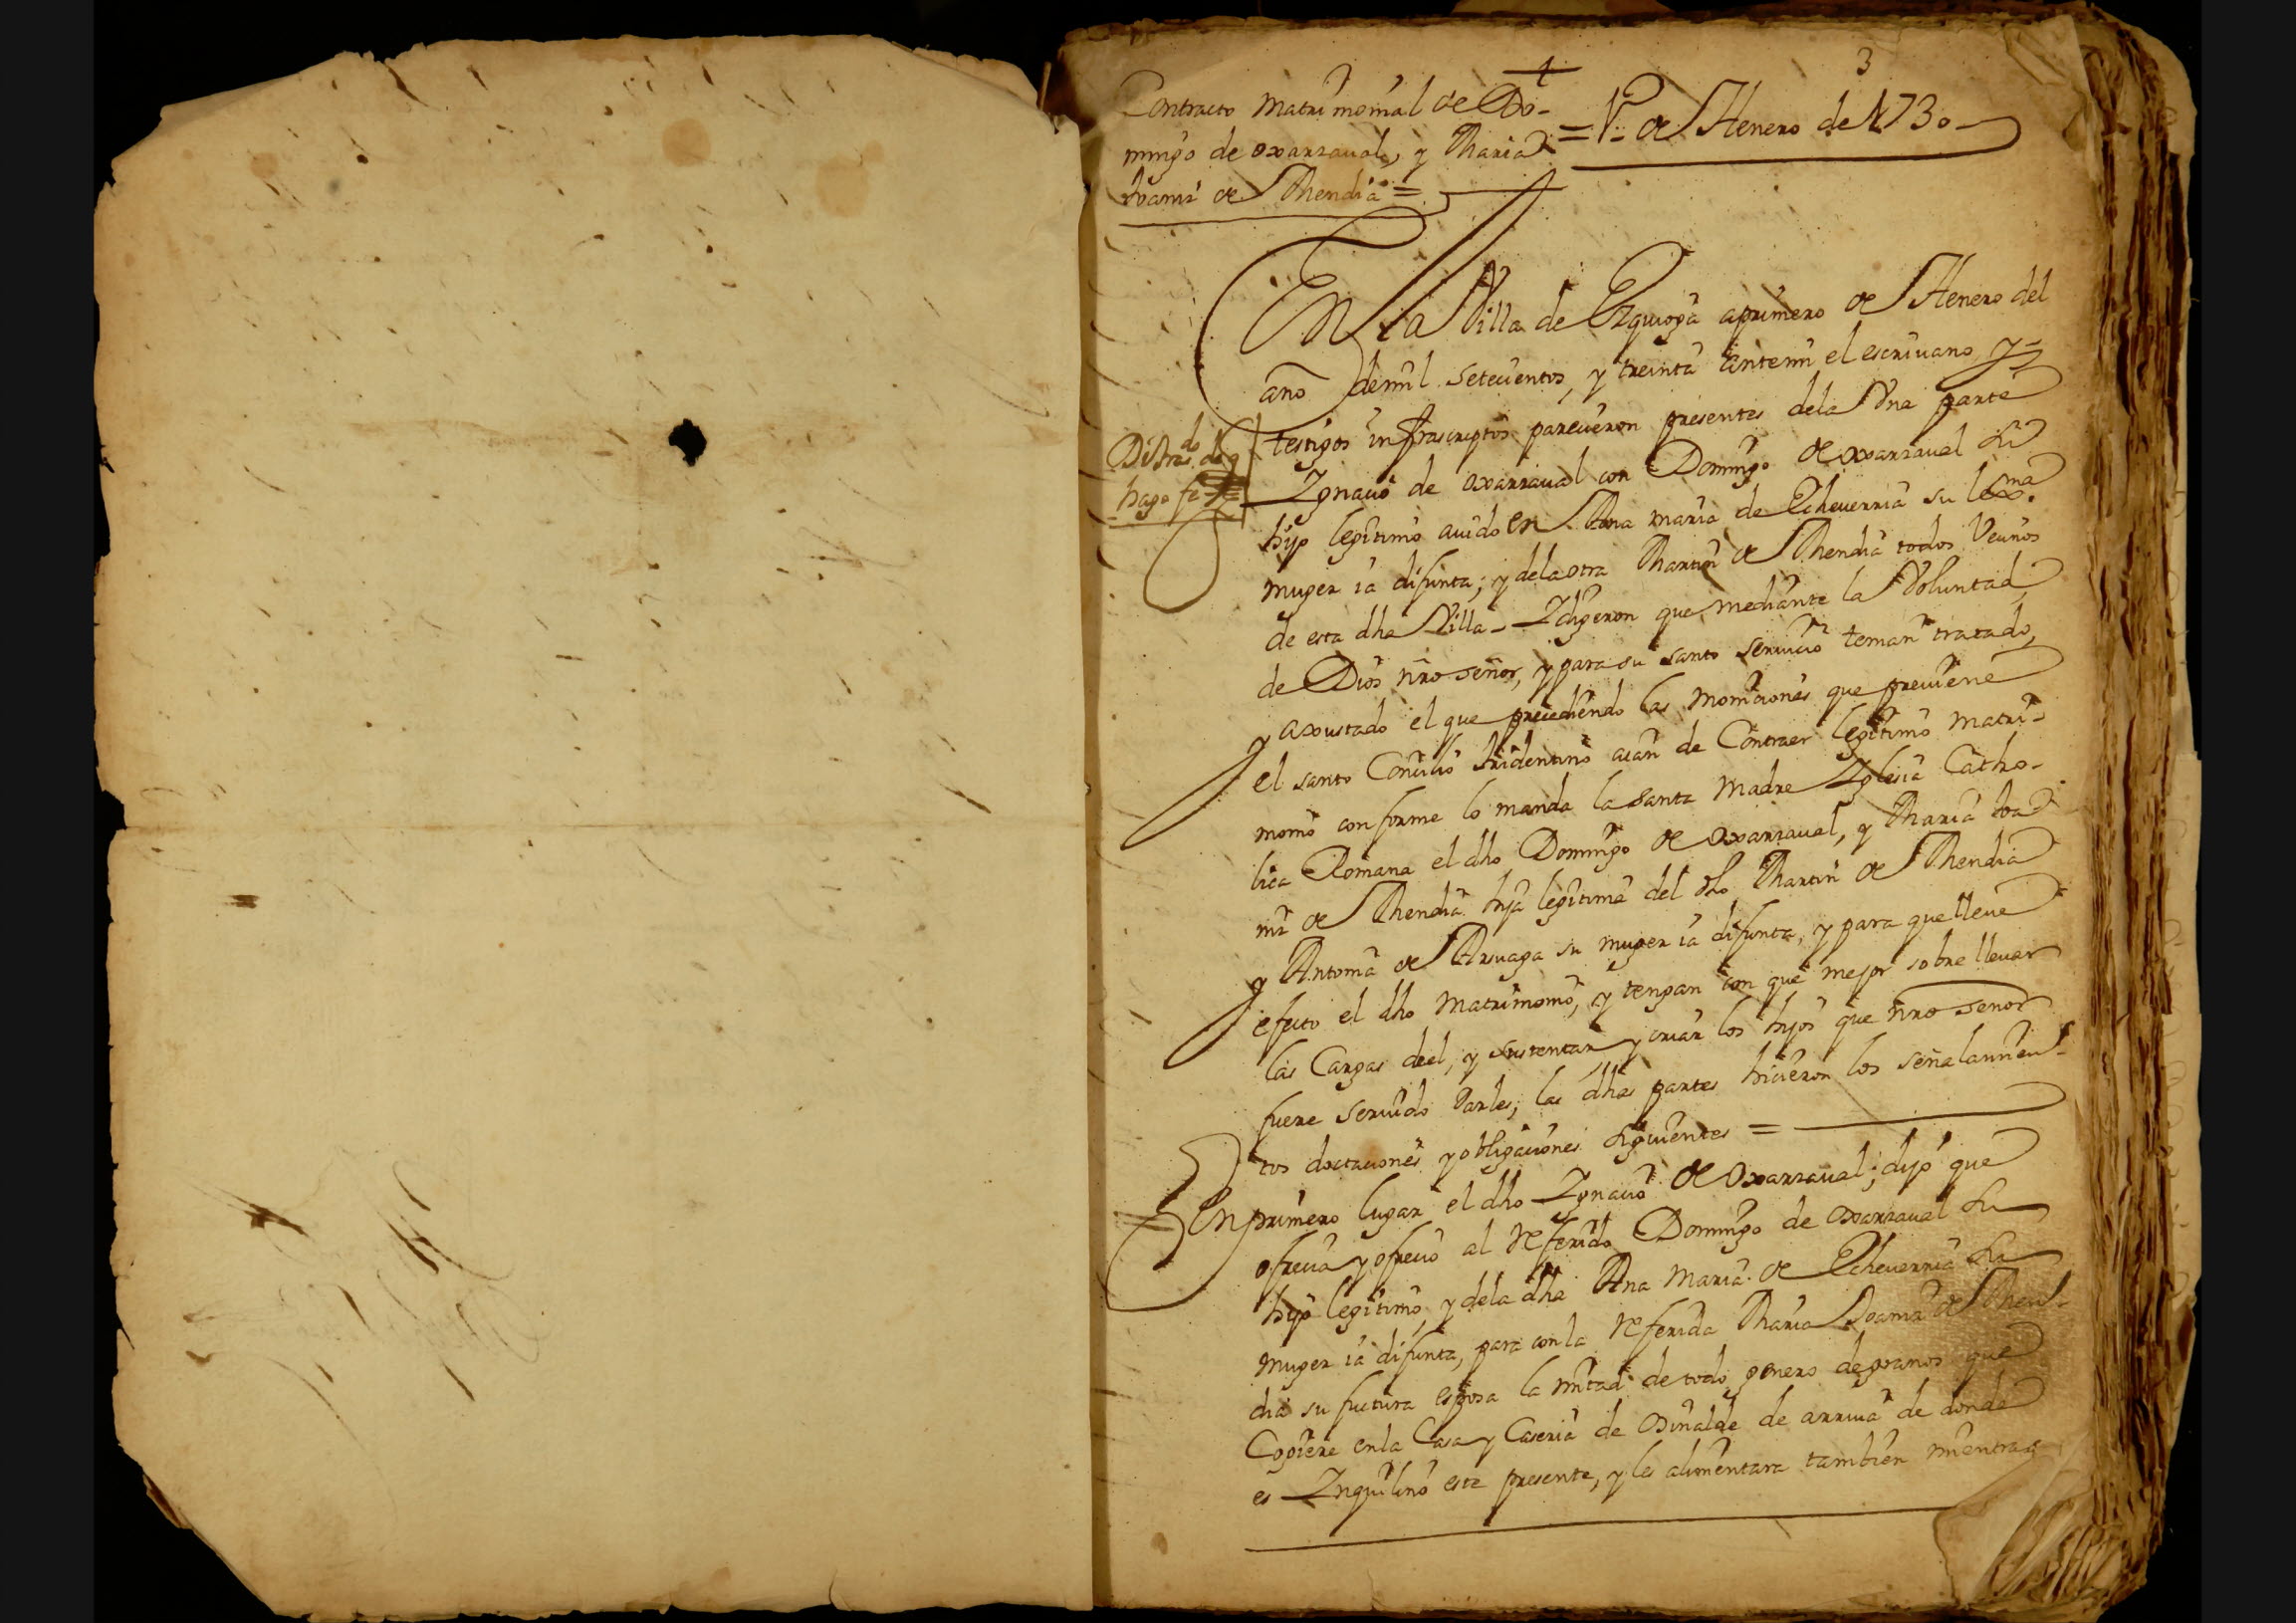 3
Contracto matrimonial de Do-
mingo de oxarraval, y Maria
Joana de Mendia =
= 1º de Henero de 1730
En la Villa de Ezquioga a primero de Henero del
año de mil setecientos, y treinta ante mi el escrivano y
testigos infrascriptos parecieron presentes de la Una parte
Ignacio de oxarraval con Domingo de oxarraval su
hijo legitimo avido en Ana maria de Echeverria su lexma.
muger ia difunta; y de la otra Martin de Mendia todos Vecinos
de esta dha Villa - I dijeron que mediante la Voluntad
de Dios nro señor, y para su santo servicio tenian tratado,
y axustado el que precediendo las moniciones que previene
el santo Concilio tridentino aian de Contraer legitimo matri-
monio conforme lo manda la santa Madre Iglesia Catho-
lica Romana el dho Domingo de oxarraval, y Maria Joa
na de Mendia hija legitima del dho Martin de Mendia
y Antonia de Arsuaga su muger ia difunta, y para que lleve
efecto el dho matrimonio, y tengan con que mejor sobre llevar
las Cargas de el, y sustentar y criar los hijos que nro señor
fuere servido darles, las dhas partes hicieron los señalamien-
tos doctaciones y obligaciones siguientes =
En primero lugar el dho Ignacio de oxarraval; dijo que
ofrecia y ofrecio al referido Domingo de oxarraval su
hijo legitimo, y de la dha Ana Maria de Echeverria su
muger ia difunta, para con la referida Maria Joana de Men-
dia su fuctura esposa la mitad de todo genero de granos que
Cogiere en la Casa y Caseria de Osinalde de arriva de donde
es Inquilino este presente, y les alimentara tambien mientras
hago fe